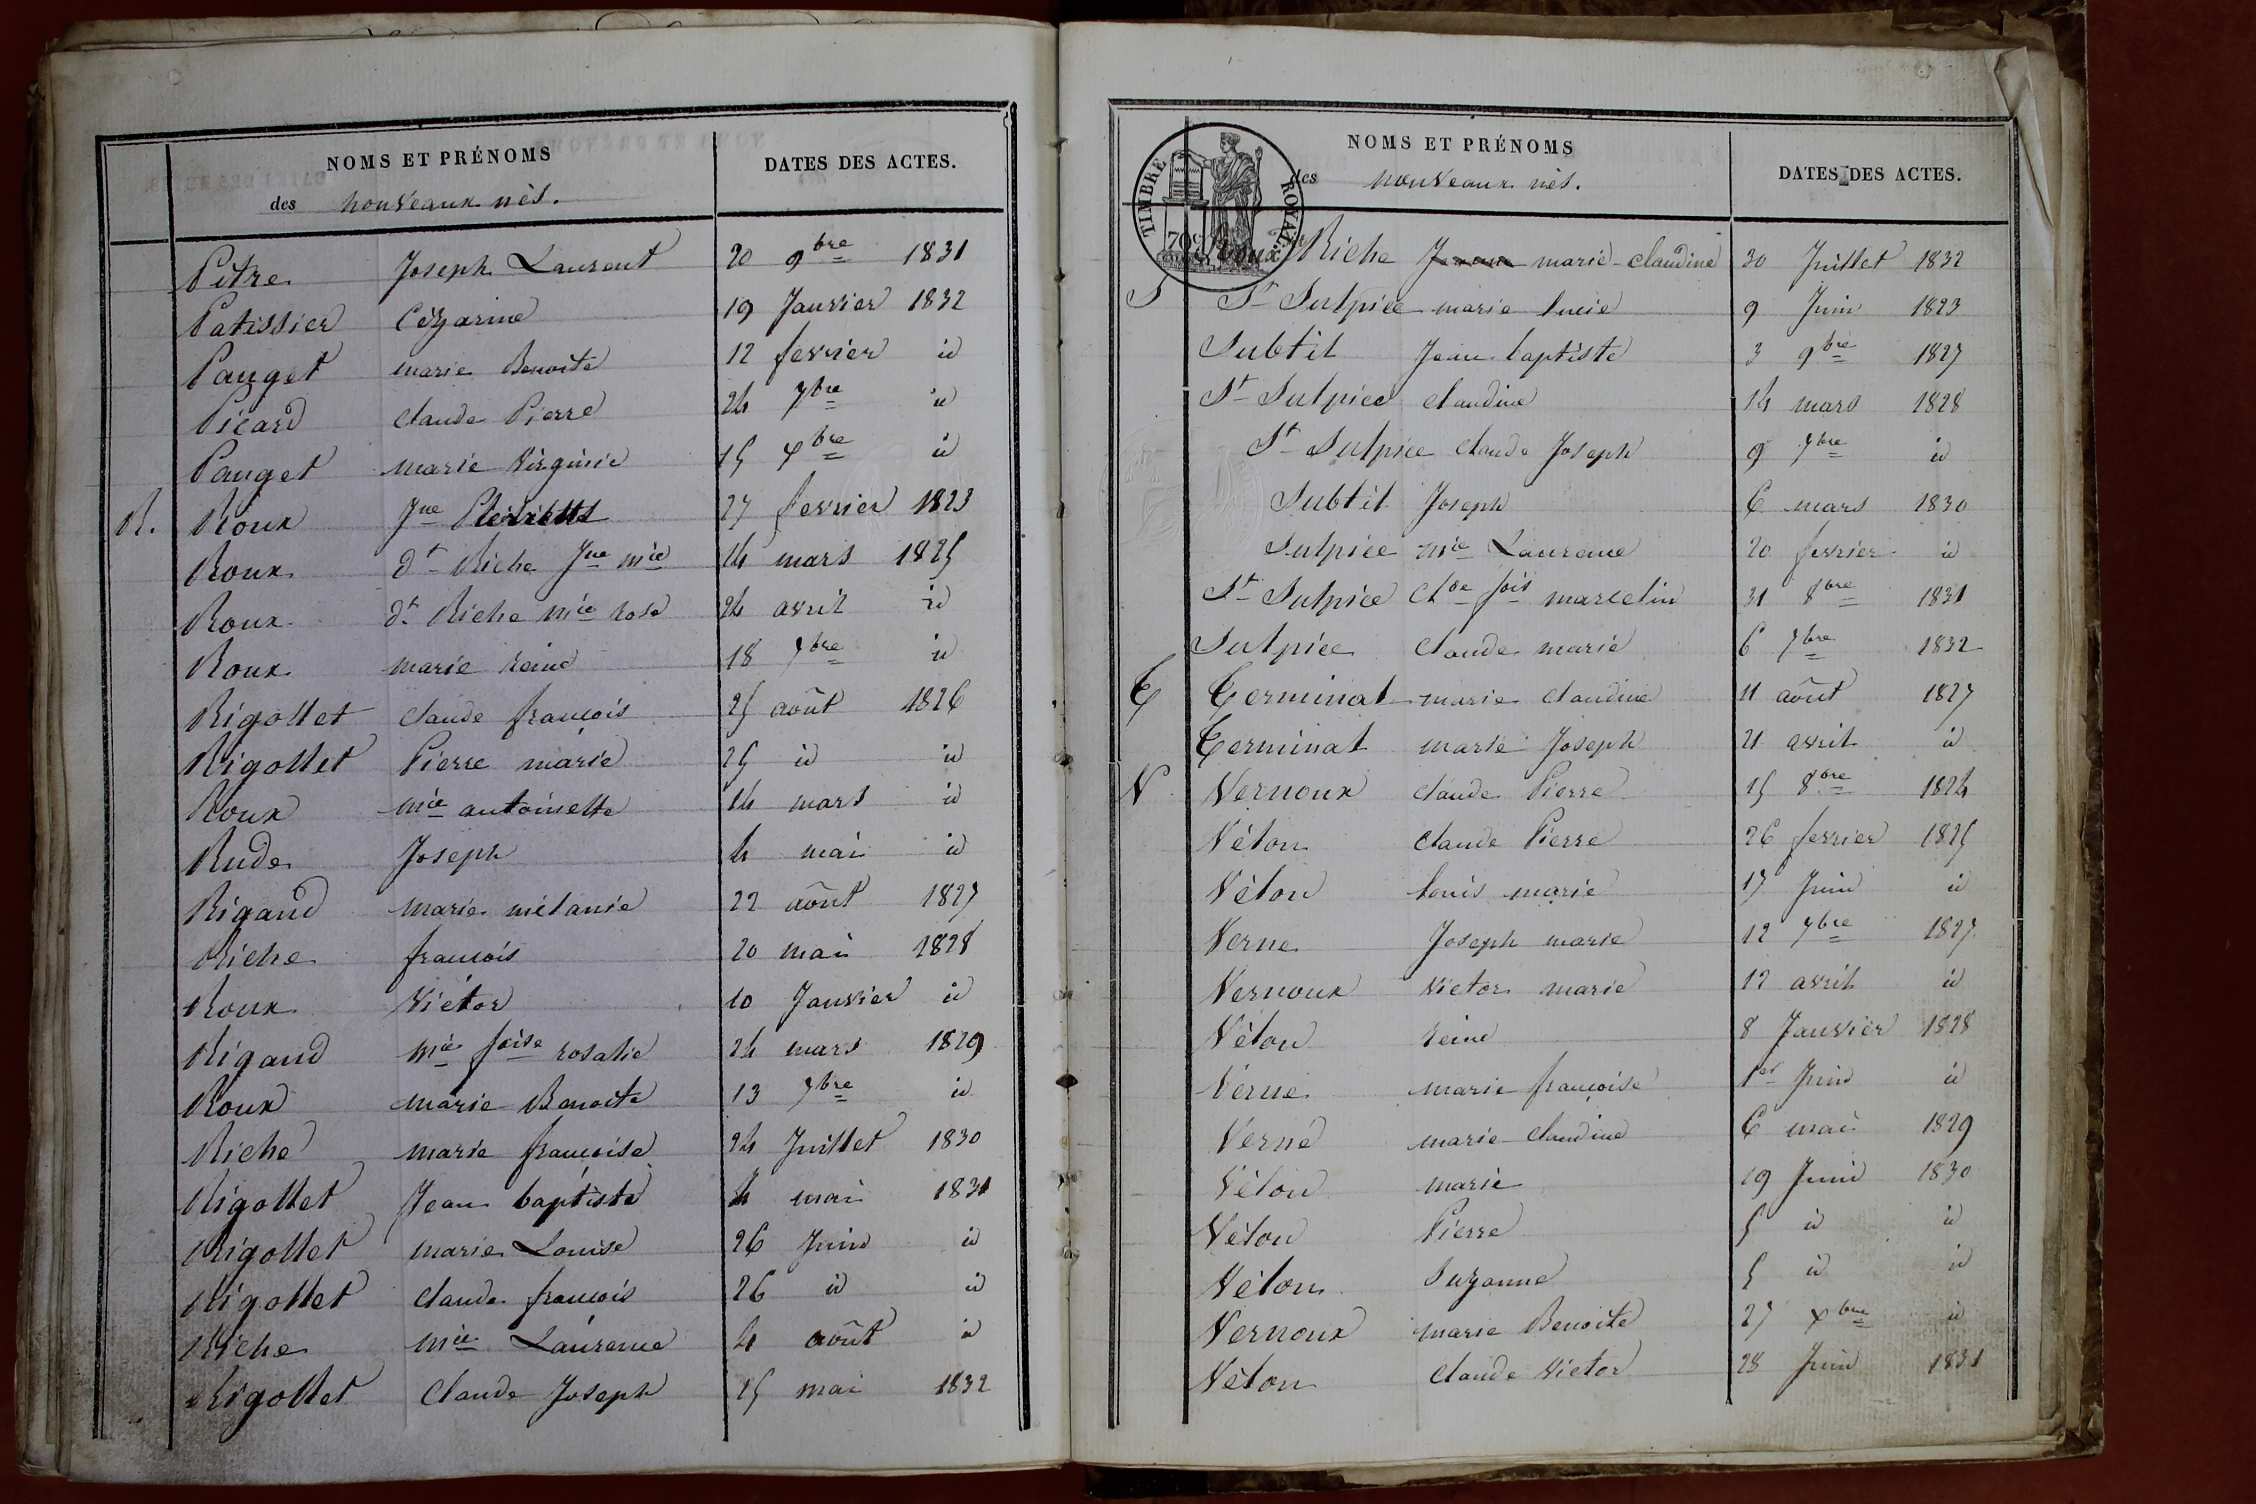 NOMS ET PRÉNOMS DATES DES ACTES.
des nouveaux nés.
Pitre Joseph Laurent 20 9bre 1831
Patissier Cézarine 19 Janvier 1832
Pauget marie Benoite 12 fevrier id
Picard claude Pierre 24 7bre id
Pauget marie virginie 15 xbre id
R. Roux Jne Pierrette 27 fevrier 1823
Roux dt Riche Jne mie 14 mars 1825
Roux dt Riche mie rose 24 avril id
Roux marie reine 18 7bre id
Rigollet claude francois 25 août 1826
Rigollet Pierre marie 25 id id
Roux mie antoinette 14 mars id
Rude Joseph 4 mai id
Rigaud marie mélanie 22 août 1827
Riche francois 20 mai 1828
Roux Victor 10 Janvier id
Rigaud mie foise rosalie 24 mars 1829
Roux marie Benoite 13 7bre id
Riche marie françoise 24 Juillet 1830
Rigollet Jean baptiste 4 mai 1831
Rigollet marie Louise 26 Juin id
Rigollet claude francois 26 id id
Riche mie Laurence 4 août id
Rigollet Claude Joseph 15 mai 1832
NOMS ET PRÉNOMS DATES DES ACTES.
des nouveaux nés.
TIMBRE ROYAL
70c
Roux dt Riche marie-claudine 30 Juillet 1832
S St Sulpice marie lucie 9 Juin 1823
Subtil Jean baptiste 3 9bre 1827
St Sulpice claudine 14 mars 1828
St Sulpice claude Joseph 9 7bre id
Subtil Joseph 6 mars 1830
Sulpice mie Laurence 20 fevrier id
St Sulpice clde fois marcelin 31 8bre 1831
Sulpice claude marie 6 7bre 1832
T Terminat marie claudine 11 août 1827
Terminat marie Joseph 21 avril id
V Vernoux claude Pierre 15 8bre 1824
Véton claude Pierre 26 fevrier 1825
Véton louis marie 17 Juin id
Verne Joseph marie 12 7bre 1827
Vernoux victor marie 12 avril id
Véton reine 8 Janvier 1828
Verne marie françoise 1er Juin id
Verne marie claudine 6 mai 1829
Véton marie 19 Juin 1830
Véton Pierre 5 id id
Véton Suzanne 5 id id
Vernoux marie Benoite 27 xbre id
Véton claude victor 28 Juin 1831